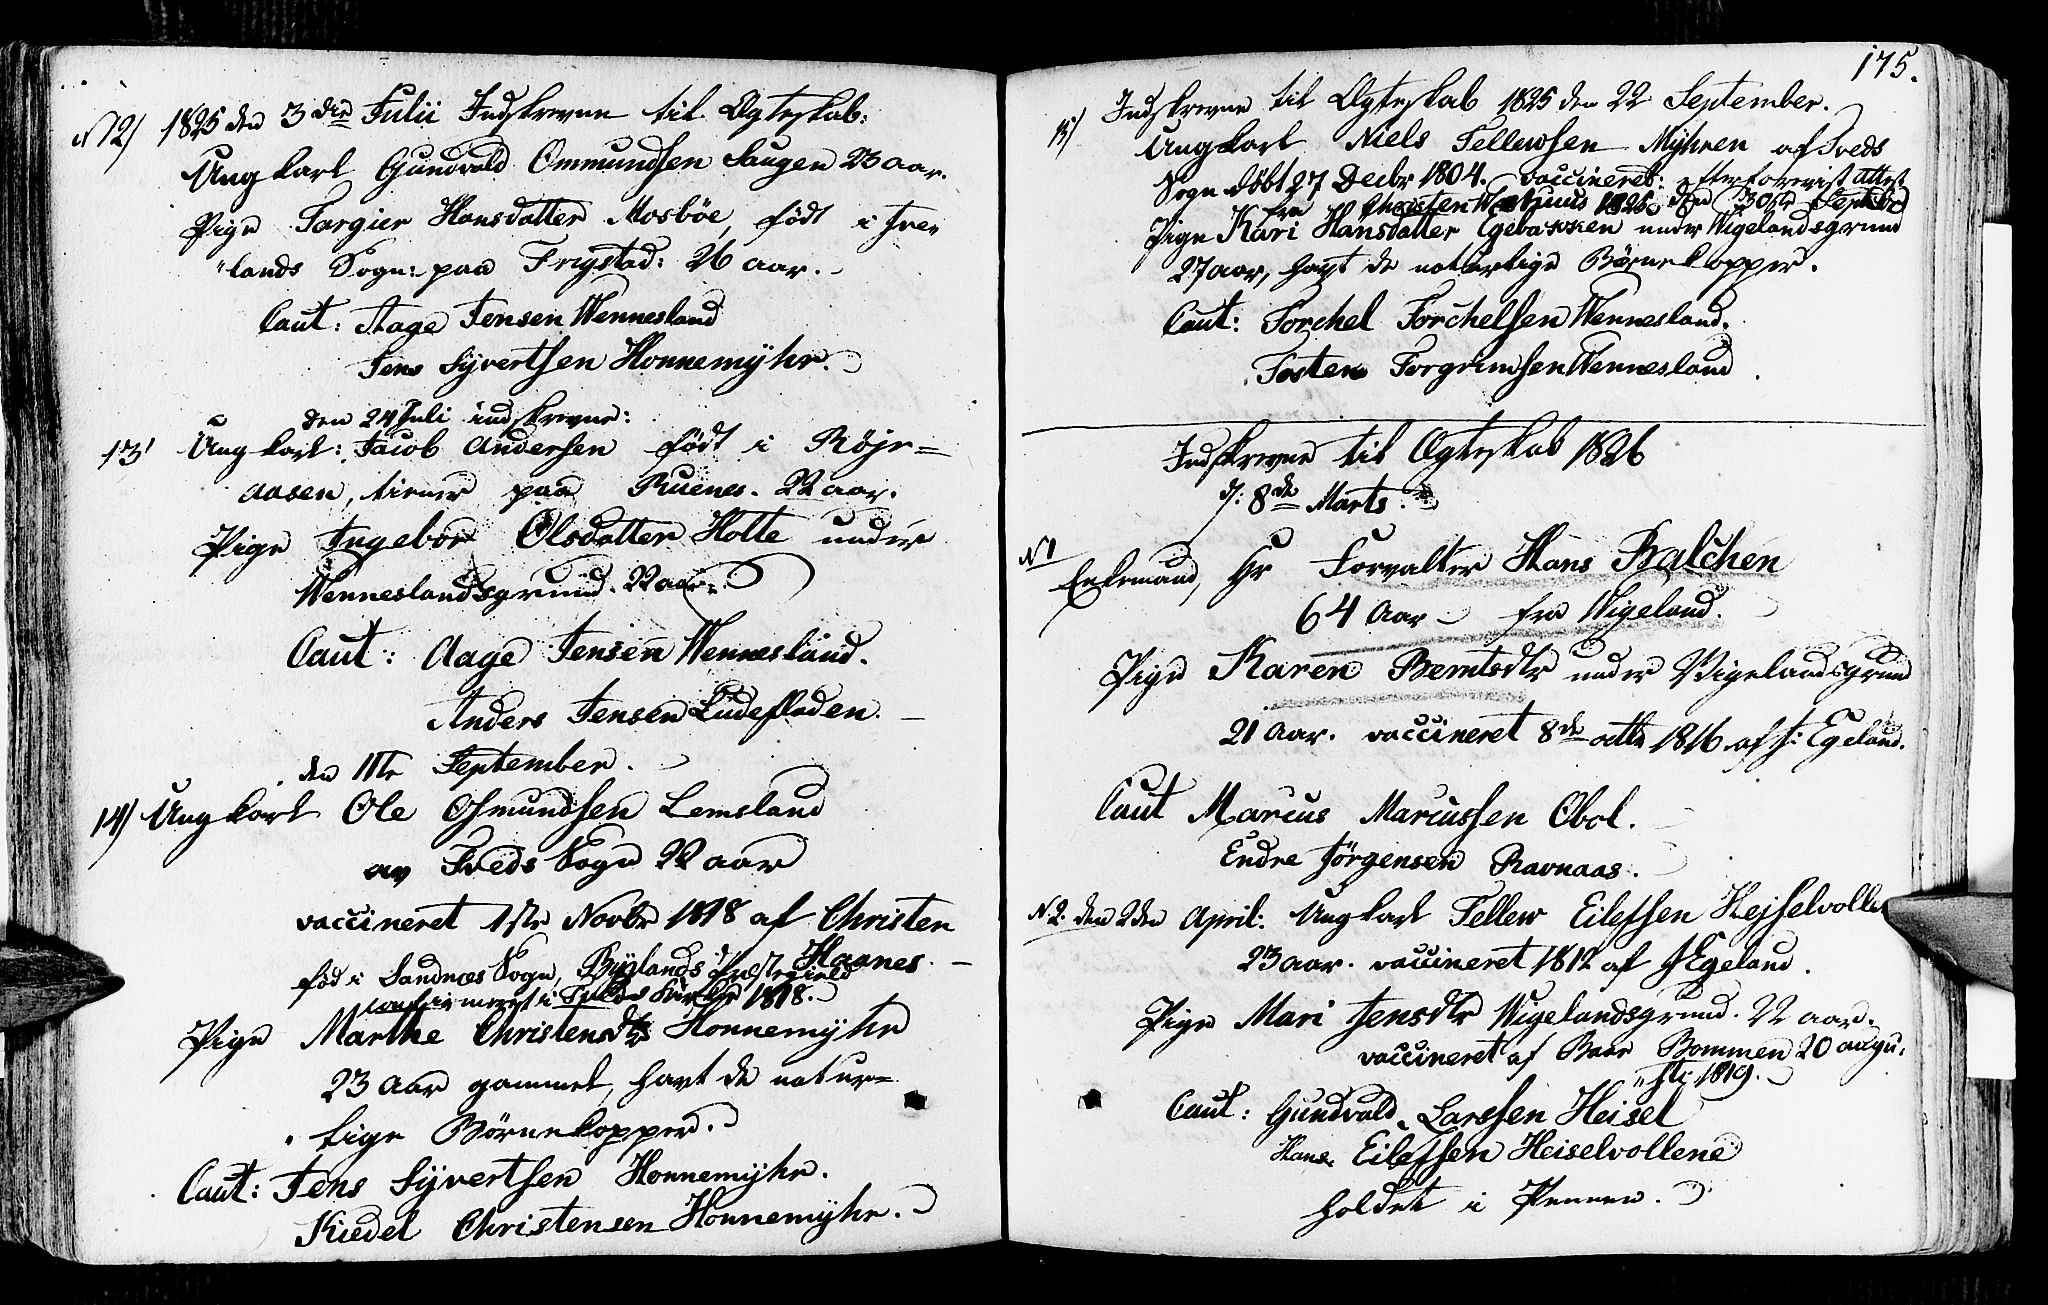 N 12) 1825 den 3die Julii Indskrevne til Ægteskab:
Ungkarl Gundvold Ommundsen Haugen 23 aar.
Pige Targier Hansdatter Mosböe, födt i Ive-
"lands Sogn: paa Frigstad: 26 aar.
Caut: Aage Jensen Wennesland
Jens Syvertsen Honnemÿhr.
den 24 Juli indskrevne:
13) Ungkarl: Jacob Andersen födt i Röjr=
aasen, tiener paa Ruenes. 22 aar.
Pige Ingebor Olsdatter Holte under
Wenneslandsgrund. 22 aar.
Caut: Aage Jensen Wennesland.
Anders Jensen Ludefladen.
den 11te September.
14) Ungkarl Ole Osmundsen Lemsland
av Treds Sogn 22 aar
vaccineret 1ste Novbr 1818 af Christen
Haanes.
föd i Sandnæs Sogn, Byglands Prestegield
confirmeret i Kirke 1818.
Pige Marthe Christensdtr Honnemÿhr
23 aar gammel, havt de natur=
lige Börnekopper.
Caut: Jens Sÿvertsen Honnemÿhr.
Kiedel Christensen Honnemÿhr.
175.
Indskrevne til Ægteskab 1825 den 22 September.
15) Ungkarl Niels Tellewsen Mÿhren af Treds
Sogn döbt 27 Decbr 1804. vaccineret: efter foreviist Attest
fra Christen 1825 den 30te Septbr
Pige Kari Hansdatter Egebakken under Wigelandsgrund
27 aar, havt de naturlige Börnekopper.
Caut: Torchel Torchelsen Wennesland.
Tosten Torgrimsen Wennesland.
Indskrevne til Ægteskab 1826
d: 8de Marts.
N 1 Enkemand, Hr Forvalter Hans Balchen
64 Aar fra Wigeland.
Pige Karen Berntsdtr under Vigelandsgrund
21 Aar. vaccineret 8de 1816 af J: Egeland.
Caut Marcus Marcussen Obol.
Endre Jörgensen Ravnaas.
N 2. den 2den April: Ungkarl Tellew Eilefsen Hejselvolle
23 aar. vaccineret 1812 af J Egeland.
Pige Mari Jensdtr Wigelandsgrund. 22 aar.
vaccineret af Boer Bommen 20 augu-
"sti 1819.
Caut: Gundvald Larssen Heisel
Hans Eilefsen Heiselvollene
holdet i Pennen.